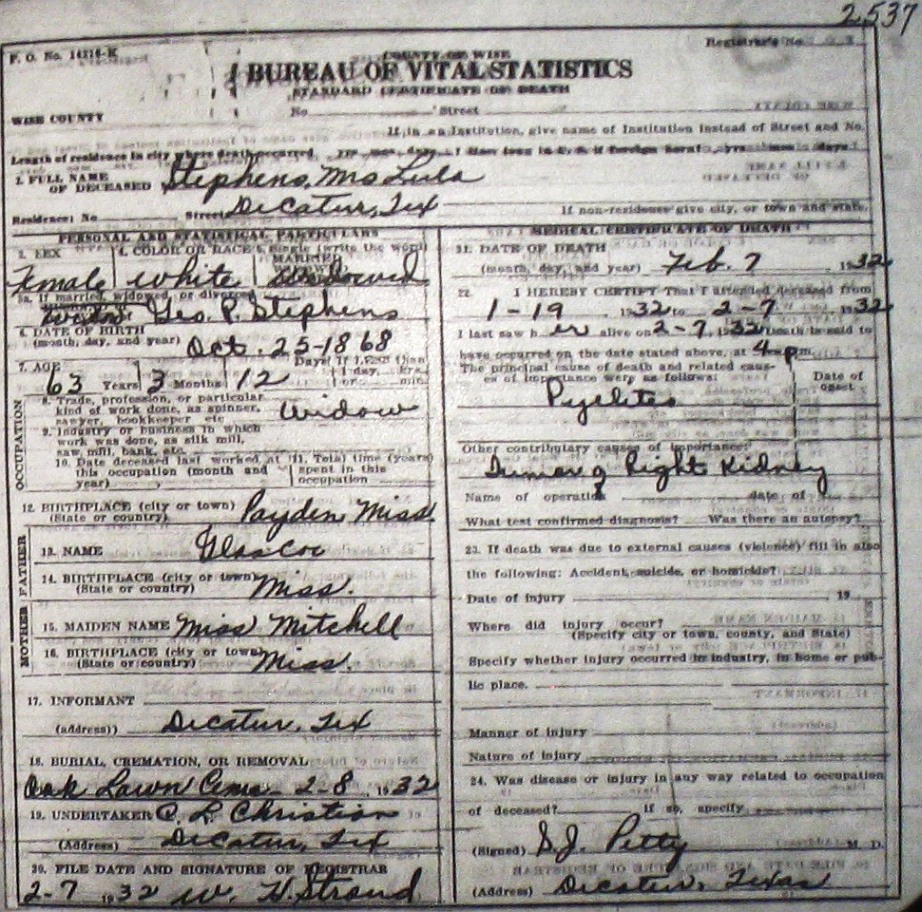 2537
F. O. No. 14216-K
Registrar's No.
COUNTY OF WISE
BUREAU OF VITAL STATISTICS
STANDARD CERTIFICATE OF DEATH
No Street
WISE COUNTY
If in an Institution, give name of Institution instead of Street and No.
Length of residence in city where death occurred yrs mos days. How long in U. S. if foreign born? yrs mos days
1. FULL NAME
OF DECEASED Stephens, Mrs Lula
Residence: No Street Decatur, Tex If non-residence give city, or town and state.
PERSONAL AND STATISTICAL PARTICULARS
3. SEX 4. COLOR OR RACE 5. Single (write the word)
MARRIED
Female White Widowed
5a. If married, widowed, or divorced
Geo. P. Stephens
6. DATE OF BIRTH
(month, day, and year) Oct. 25-1868
7. AGE Days If LESS than
63 Years 3 Months 12 1 day, hrs.
or min.
OCCUPATION
8. Trade, profession, or particular
kind of work done, as spinner, Widow
sawyer, bookkeeper etc
9. Industry or business in which
work was done, as silk mill,
saw mill, bank, etc.
10. Date deceased last worked at 11. Total time (years)
this occupation (month and spent in this
year) occupation
12. BIRTHPLACE (city or town) Payden Miss
(State or country)
FATHER
13. NAME Glascoe
14. BIRTHPLACE (city or town) Miss.
(State or country)
MOTHER
15. MAIDEN NAME Miss Mitchell
16. BIRTHPLACE (city or town) Miss.
(State or country)
17. INFORMANT
(address)) Decatur, Tex
18. BURIAL, CREMATION, OR REMOVAL
Oak Lawn Cem- 2-8, 1932
19. UNDERTAKER C. L. Christian
(Address) Decatur, Tex
20. FILE DATE AND SIGNATURE OF REGISTRAR
2-7 1932 W. H. Stroud
MEDICAL CERTIFICATE OF DEATH
21. DATE OF DEATH
(month, day, and year) Feb. 7, 1932
22. I HEREBY CERTIFY That I attended deceased from
1-19 1932 to 2-7 1932
I last saw her alive on 2-7, 1932 Death is said to
have occurred on the date stated above, at 4 p m.
The principal cause of death and related caus-
es of importance were as follows: Date of
onset
Pyelites
Other contributary causes of importance:
Tumor of Right Kidney
Name of operation date of
What test confirmed diagnosis? Was there an autopsy?
23. If death was due to external causes (violence) fill in also
the following: Accident, suicide, or homicide?
Date of injury 19
Where did injury occur?
(Specify city or town, county, and State)
Specify whether injury occurred in industry, in home or pub-
lic place.
Manner of injury
Nature of injury
24. Was disease or injury in any way related to occupation
of deceased? if so, specify
(Signed) S.J. Petty M. D.
(Address) Decatur, Texas